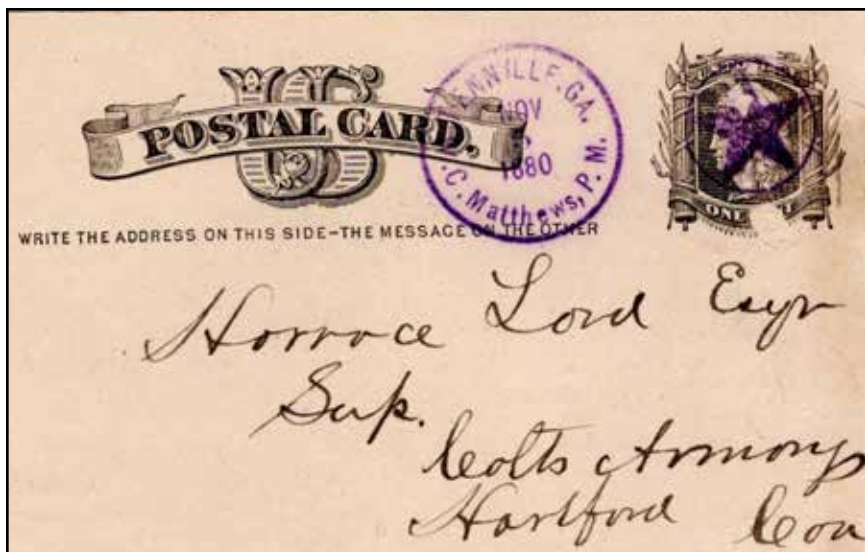 US
POSTAL CARD.
ENNILLE, GA.
NOV
1880
.C. Matthews, P. M.
ONE
WRITE THE ADDRESS ON THIS SIDE–THE MESSAGE ON THE OTHER
Horrace Lord Esqr
Sup.
Colts Armory
Hartford Con